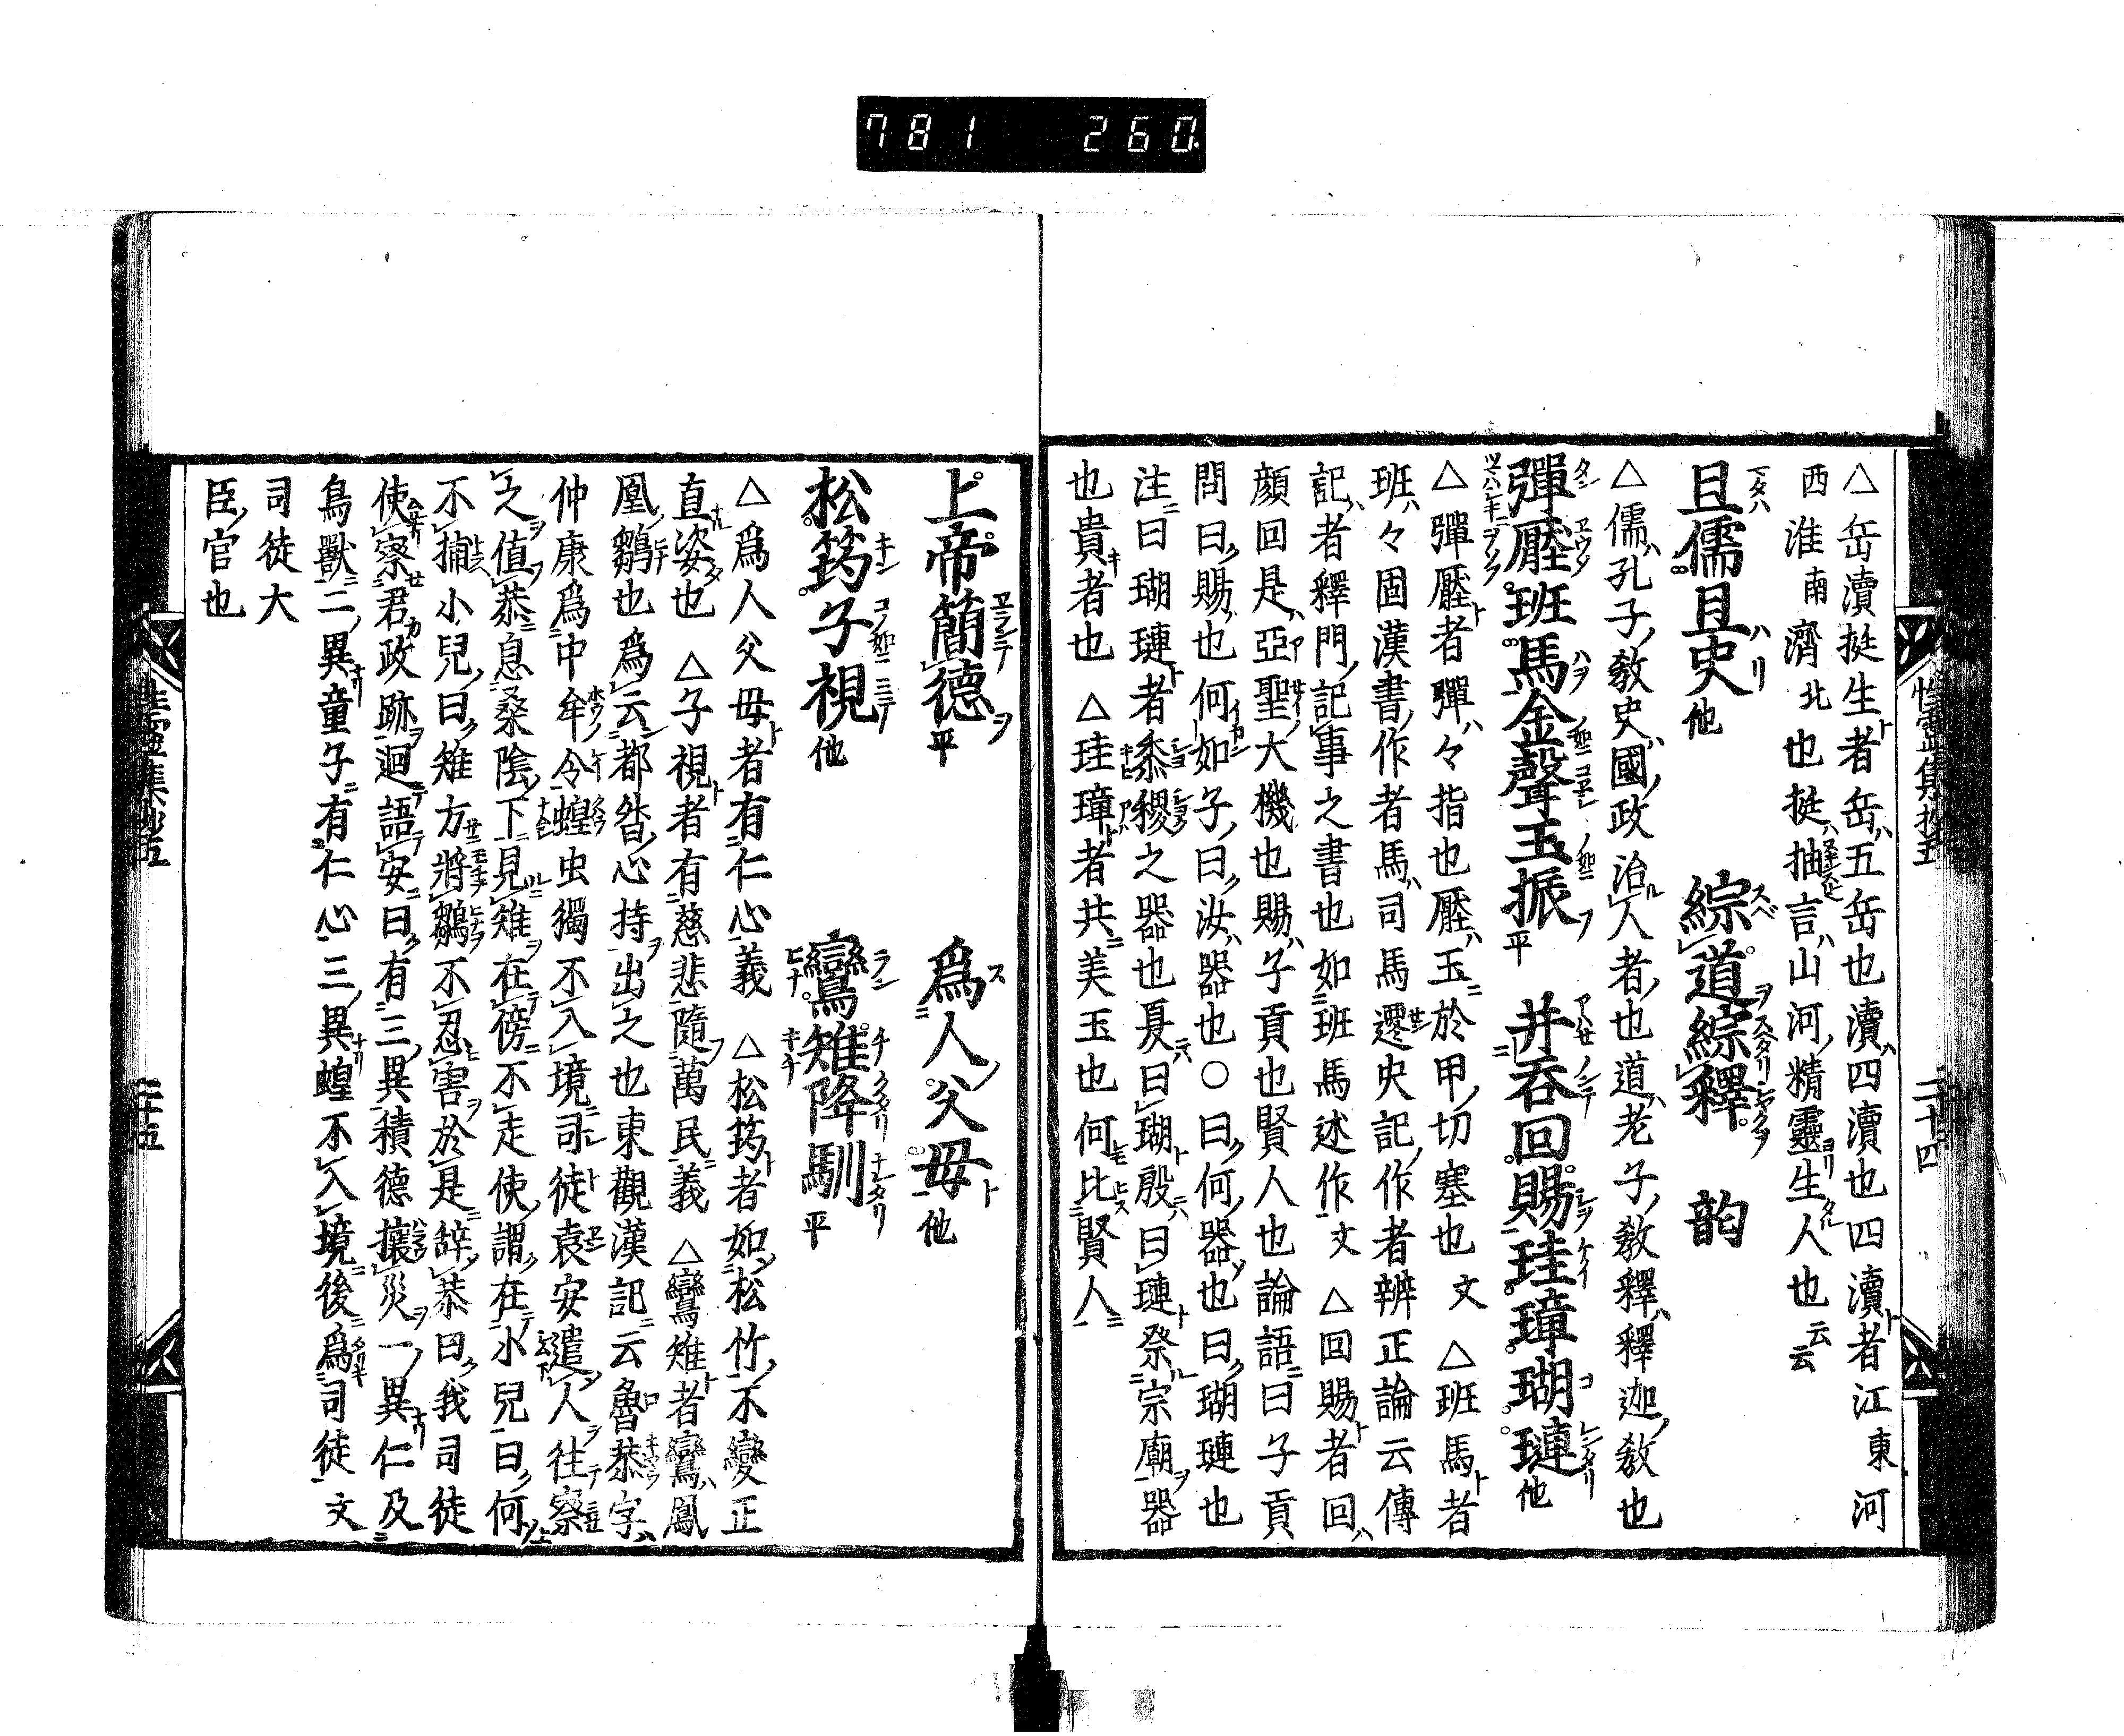 781 260
△岳瀆挺生者岳五岳也瀆四瀆也四瀆者江東河
西淮南濟北也挺抽言山河精靈生人也云云
且儒且史他 綜道綜釋 韵
△儒孔子教史國政治人者也道老子教釋釋迦教也
彈壓班馬金聲玉振平 井吞回賜珪璋瑚璉他
△彈壓者彈々指也壓玉於甲切塞也文 △班馬者
班々固漢書作者馬司馬遷史記作者辨正論云傳
記者釋門記事之書也如班馬述作文 △回賜者回
顔回是亞聖大機也賜子貢也賢人也論語曰子貢
問曰賜也何如子曰汝器也○曰何器也曰瑚璉也
注曰瑚璉者黍稷之器也夏曰瑚殷曰璉祭宗廟器
也貴者也 △珪璋者共美玉也何比賢人
二十四
上帝簡德平 爲人父母他
松筠子視他 鸞雉降馴平
△爲人父母者有仁心義 △松筠者如松竹不變正
直姿也 △子視者有慈悲隨萬民義 △鸞雉者鸞鳳
凰鶵也爲云都呰心持出之也東觀漢記云魯恭字
仲康爲中牟令蝗虫獨不入境司徒袁安遣人往察
之値恭息桑陰下見雉在傍不走使謂在水兒曰何
不捕小兒曰雉方將鶵不忍害於是辭恭曰我司徒
使察君政跡迴語安曰有三異積德攘災一異仁及
鳥獸二異童子有仁心三異蝗不入境後爲司徒文
司徒大
臣官也
二十五